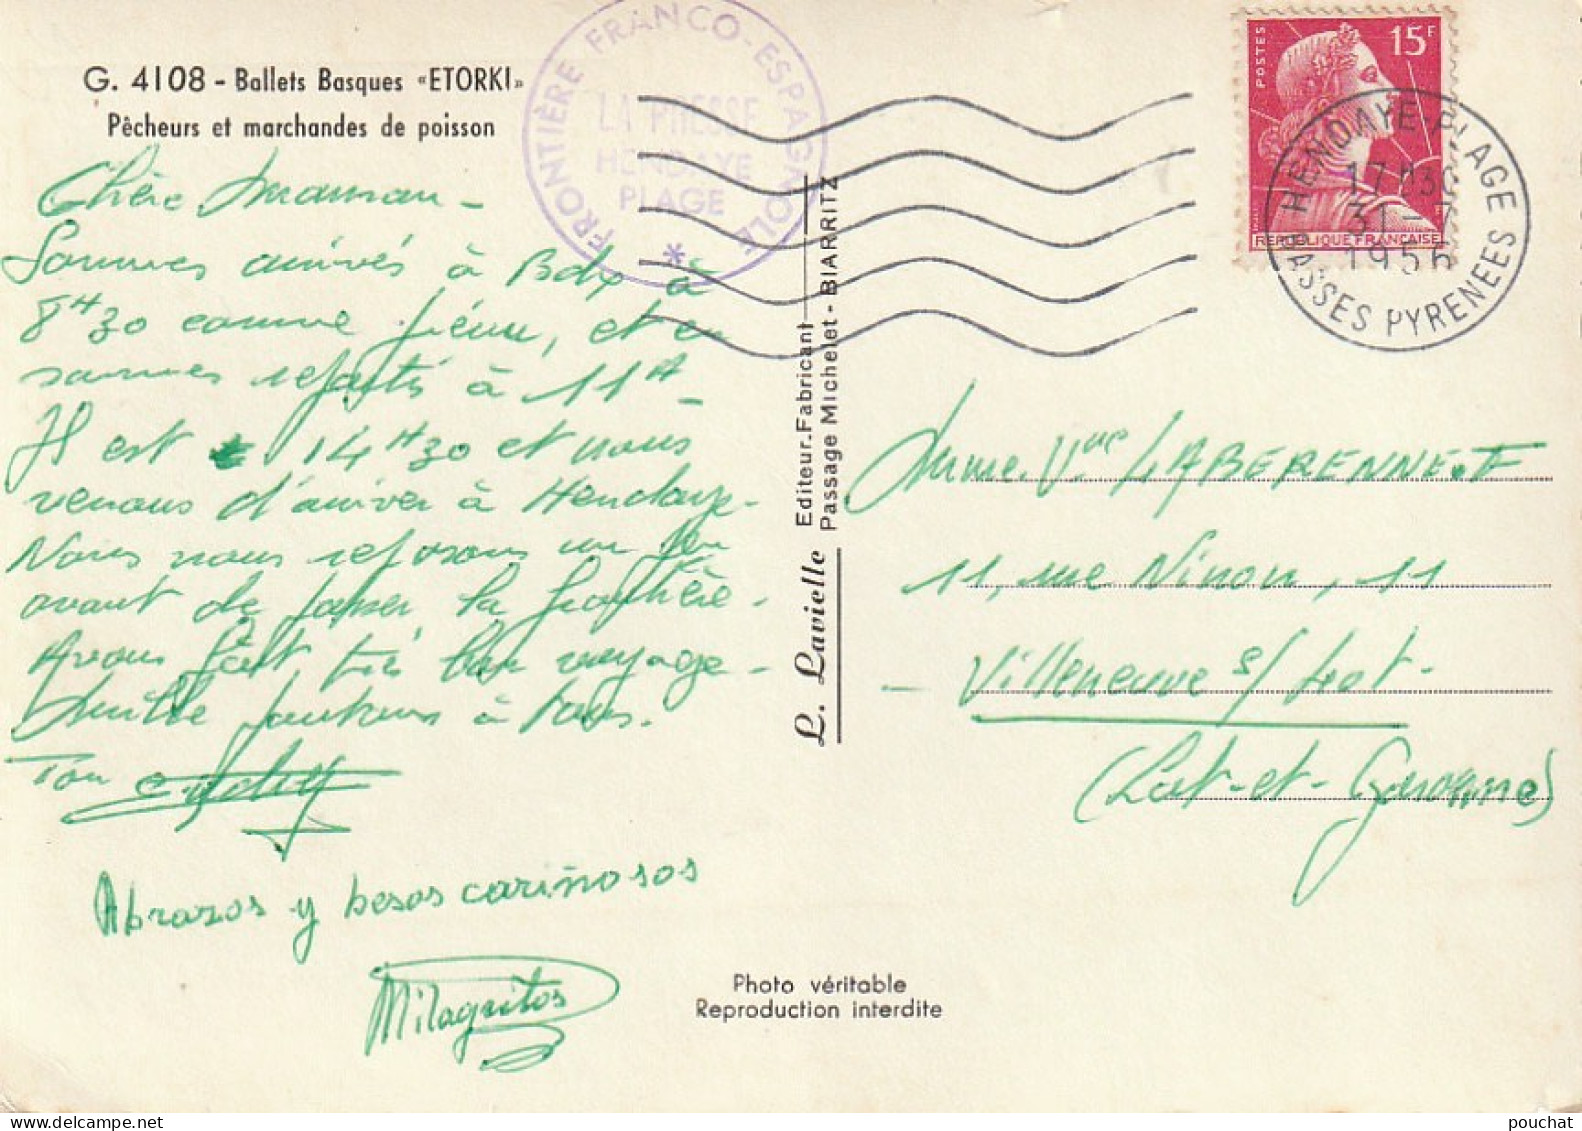 G. 4108 - Ballets Basques «ETORKI»
Pêcheurs et marchandes de poisson
FRONTIÈRE FRANCO-ESPAGNOLE
LA PRESSE
HENDAYE
PLAGE
*
POSTES
15F
REPUBLIQUE FRANÇAISE
HENDAYE-PLAGE
17H30
31 -
1956
BASSES PYRENEES
Chère Maman -
Sommes arrivés à Bdx à
8H30 comme prévu, et en
sommes repartis à 11H -
Il est 14H30 et nous
venons d'arriver à Hendaye -
Nous nous reposons un peu
avant de passer la frontière.
Avons fait très bon voyage -
Mille poutous à tous.
Ton
Abrazos y besos cariñosos
Milagritos
L. Lavielle Editeur-Fabricant
Passage Michelet - BIARRITZ
Mme Vve LABERENNE.F
11, rue Ninon, 11
- Villeneuve s/ Lot -
(Lot-et-Garonne)
Photo véritable
Reproduction interdite
pouchat